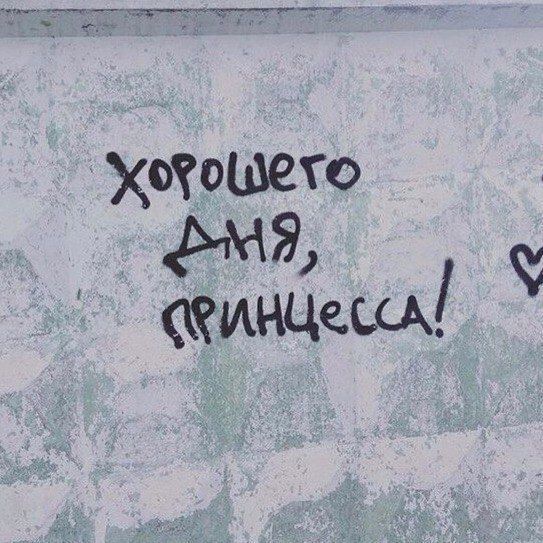 хорошего
дня,
принцесса!